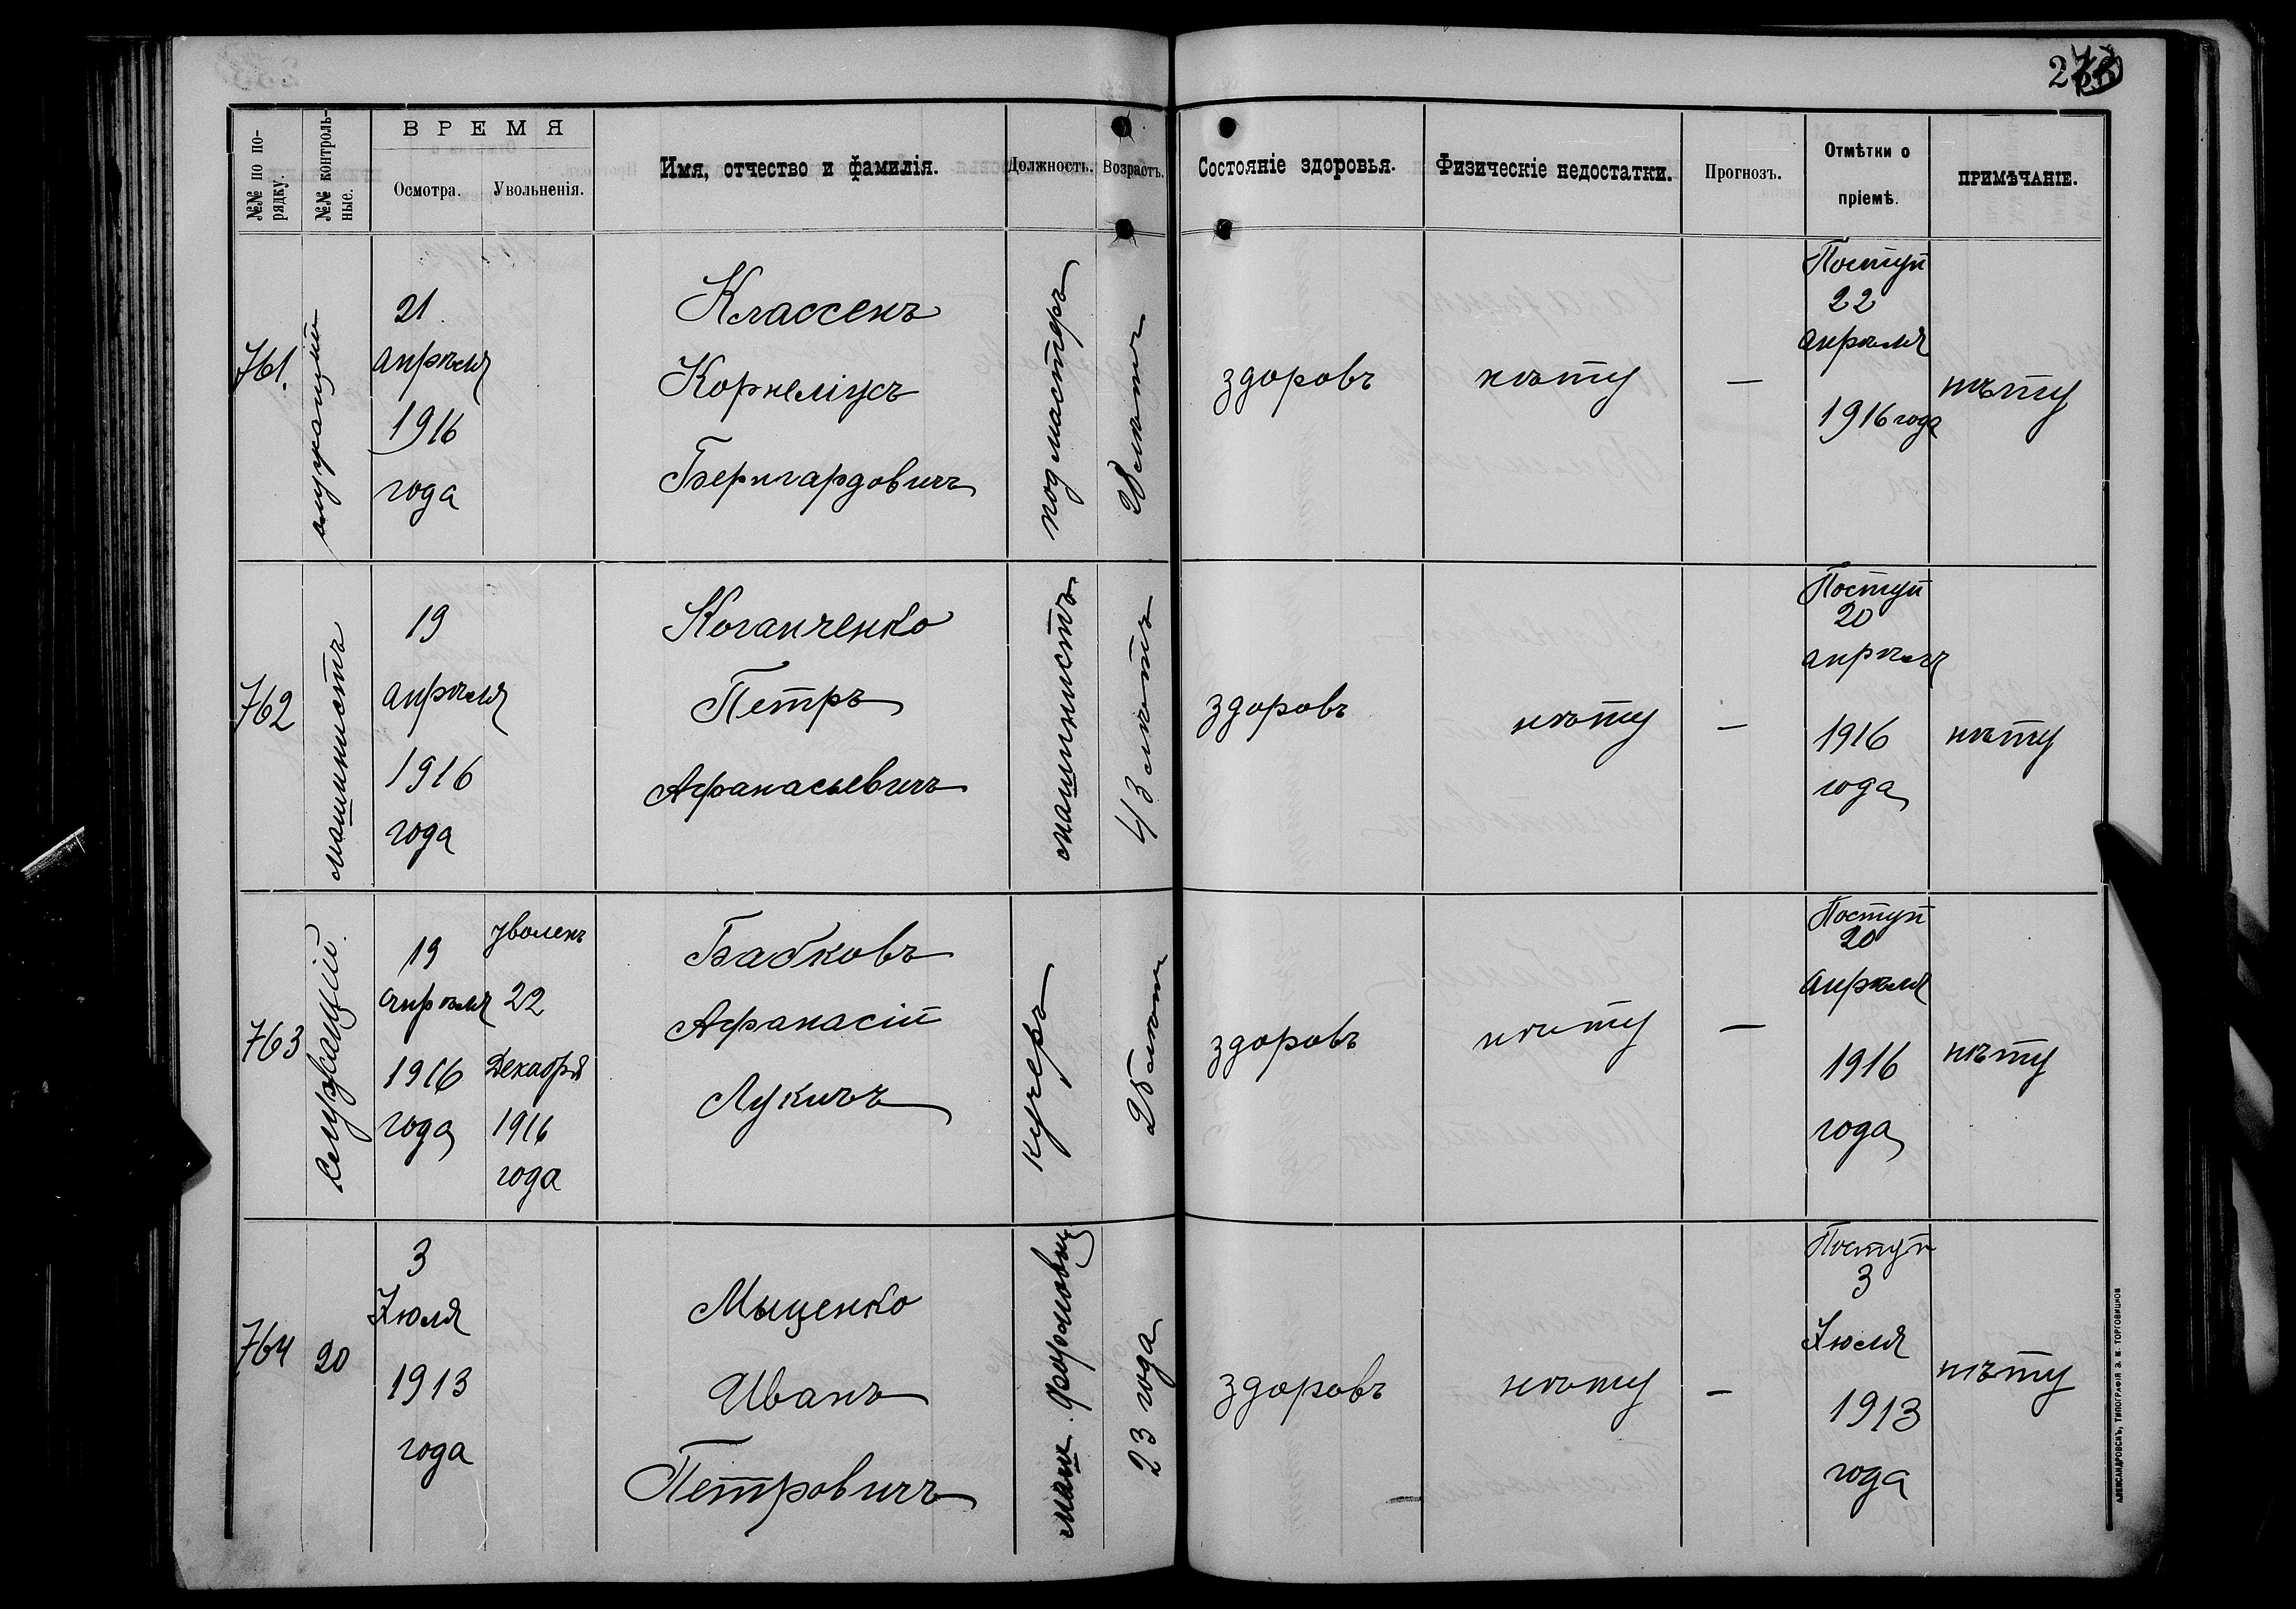 №№ по по-
рядку.
№№ контроль-
ные.
ВРЕМЯ
Осмотра.
Увольненія.
Имя, отчество и фамилія.
Должность.
Возрастъ.
Состояніе здоровья.
Физическіе недостатки.
Прогнозъ.
Отмѣтки о
пріемѣ.
ПРИМѢЧАНІЕ.
761.
служащій
21
апрѣля
1916
года
Классенъ
Корнеліусъ
Бернгардовичъ
подмастеръ
28 лѣтъ
здоровъ
нѣту
—
Поступ
22
апрѣля
1916 года
нѣту
762
машинистъ
19
апрѣля
1916
года
Коганченко
Петръ
Афанасьевичъ
машинистъ
43 лѣтъ
здоровъ
нѣту
—
Поступ
20
апрѣля
1916
года
нѣту
763
Служащій.
19
апрѣля
1916
года
уволенъ
22
Декабря
1916
года
Бабковъ
Афанасій
Лукичъ
кучеръ
здоровъ
нѣту
—
Поступ
20
апрѣля
1916
года
нѣту
764
20
3
Іюля
1913
года
Мыценко
Иванъ
Петровичъ
маш. формовщ
23 года
здоровъ
нѣту
—
Поступ
3
Іюля
1913
года
нѣту
АЛЕКСАНДРОВСКЪ, ТИПОГРАФІЯ З. И. ТОРГОВИЦКОВ